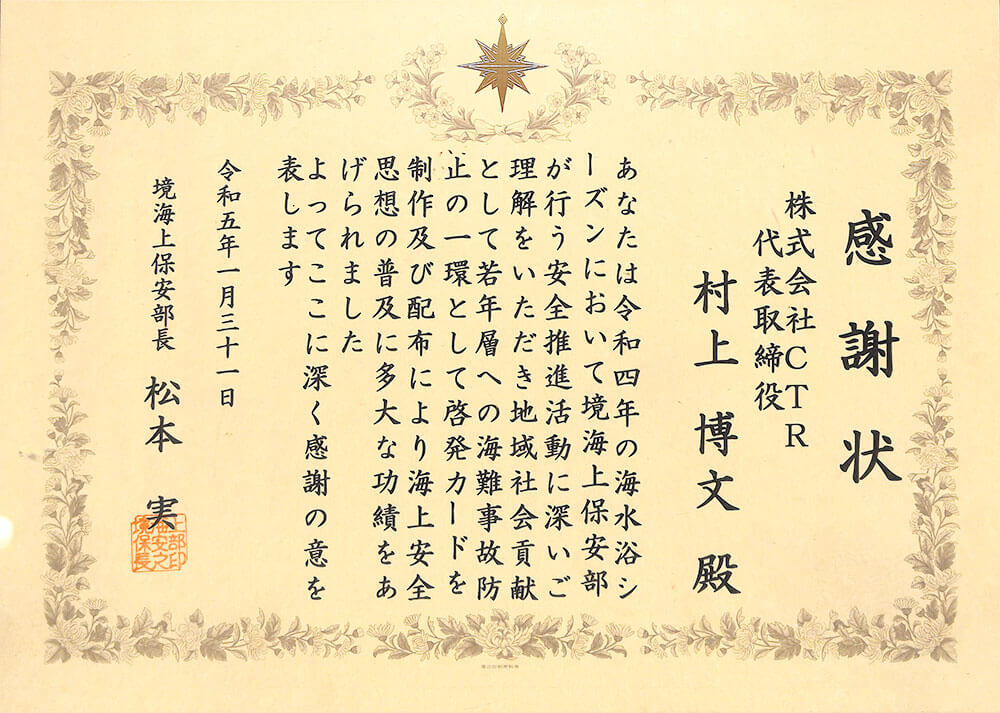 感謝状
株式会社CTR
代表取締役
村上 博文 殿
あなたは令和四年の海水浴シ
ーズンにおいて境海上保安部
が行う安全推進活動に深いご
理解をいただき地域社会貢献
として若年層への海難事故防
止の一環として啓発カードを
制作及び配布により海上安全
思想の普及に多大な功績をあ
げられました
よってここに深く感謝の意を
表します
令和五年一月三十一日
境海上保安部長 松本 実